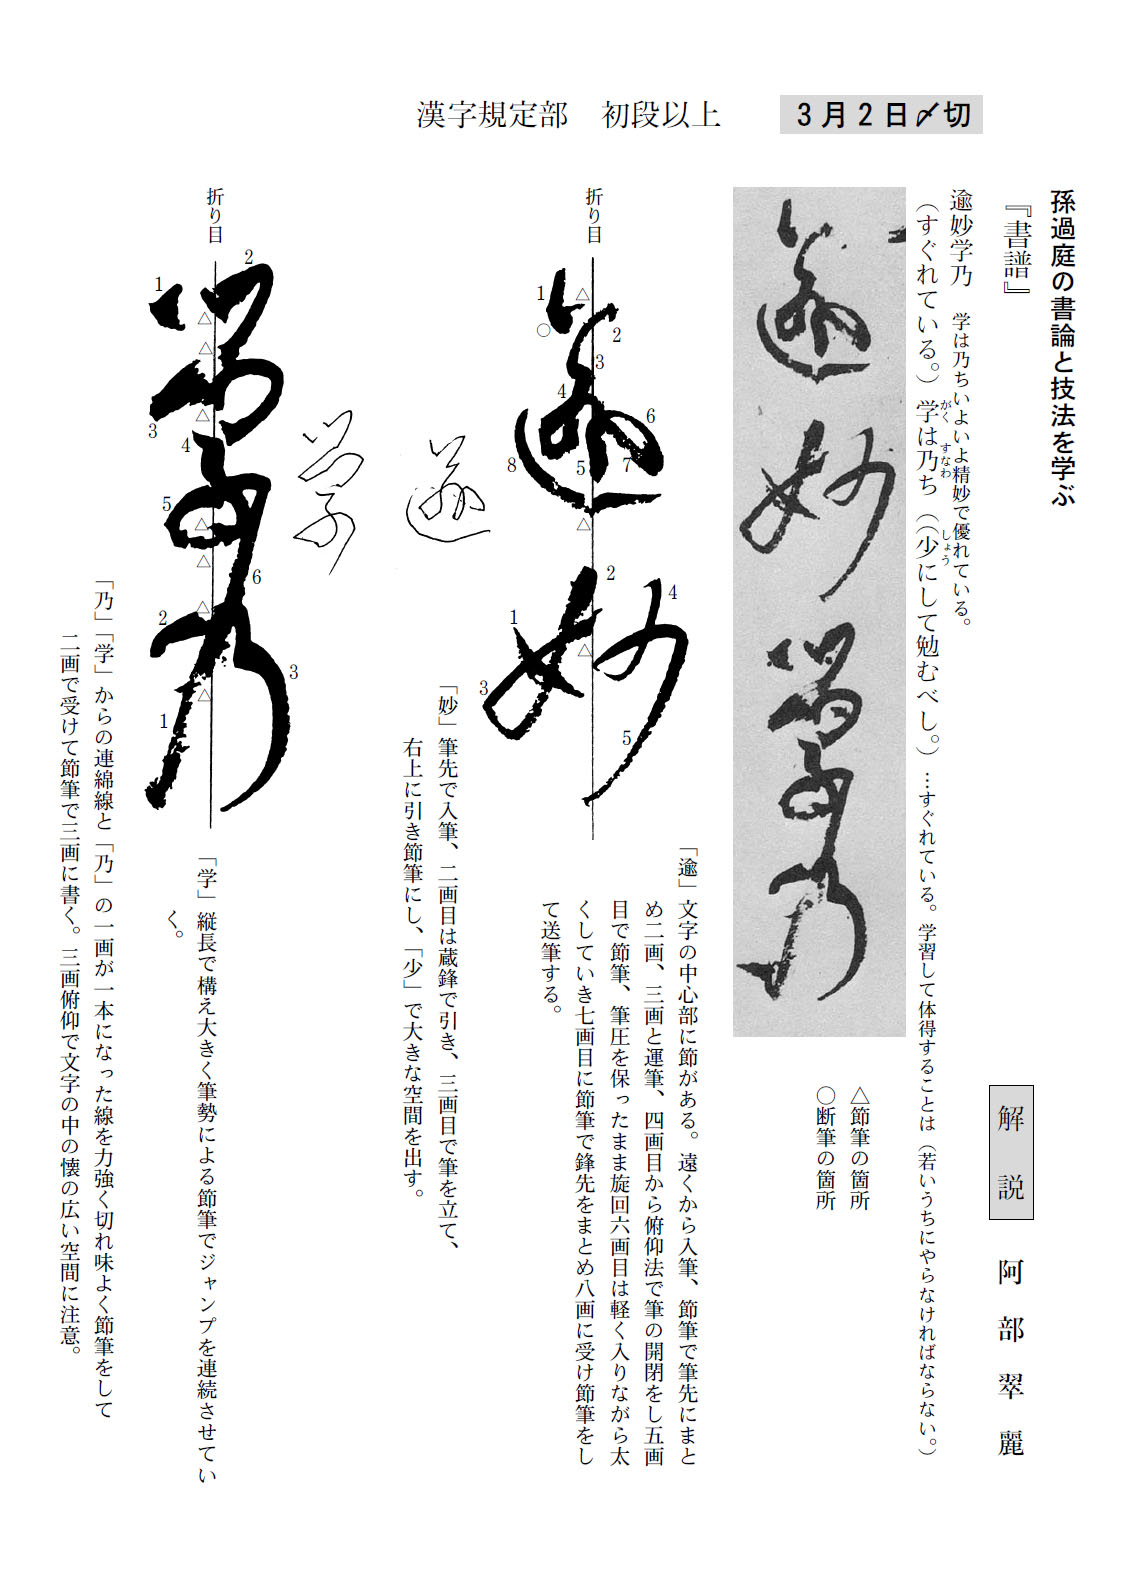 3月2日〆切
漢字規定部　初段以上
孫過庭の書論と技法を学ぶ
『書譜』
解説
阿部翠麗
逾妙学乃　学は乃ちいよいよ精妙で優れている。
（すぐれている。）学は乃ち（（少にして勉むべし。）…すぐれている。学習して体得することは（若いうちにやらなければならない。）
がく
すなわ
しょう
△節筆の箇所
○断筆の箇所
逾妙学乃
折り目
1
2
3
4
5
6
7
8
1
2
3
4
5
「逾」文字の中心部に節がある。遠くから入筆、節筆で筆先にまと
め二画、三画と運筆、四画目から俯仰法で筆の開閉をし五画
目で節筆、筆圧を保ったまま旋回六画目は軽く入りながら太
くしていき七画目に節筆で鋒先をまとめ八画に受け節筆をし
て送筆する。
「妙」筆先で入筆、二画目は蔵鋒で引き、三画目で筆を立て、
右上に引き節筆にし、「少」で大きな空間を出す。
折り目
1
2
3
4
5
6
2
3
1
「学」縦長で構え大きく筆勢による節筆でジャンプを連続させてい
く。
「乃」「学」からの連綿線と「乃」の一画が一本になった線を力強く切れ味よく節筆をして
二画で受けて節筆で三画に書く。三画俯仰で文字の中の懐の広い空間に注意。